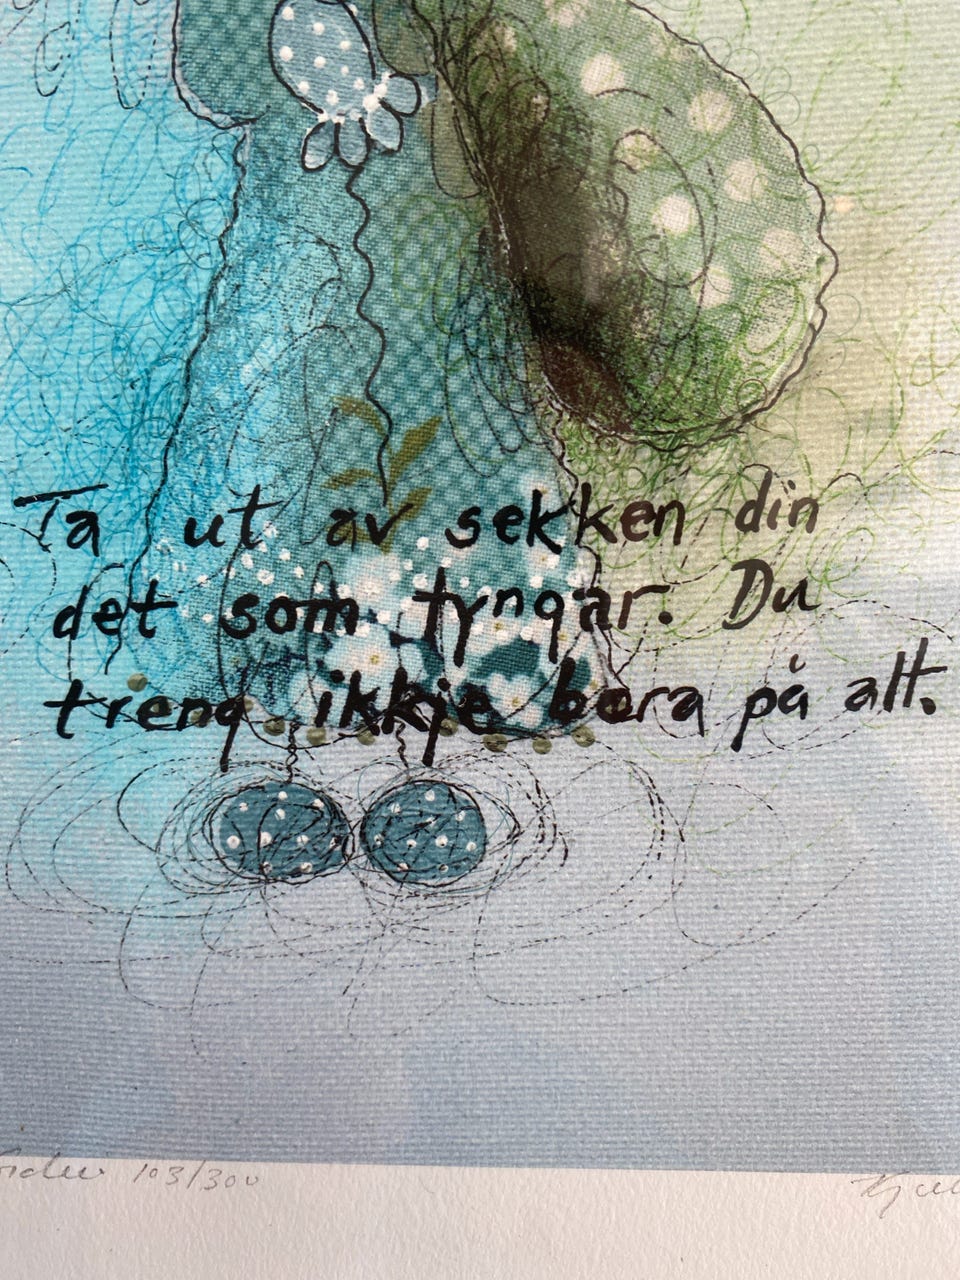 Ta ut av sekken din
det som tyngar. Du
treng ikkje bera på alt.
103/300